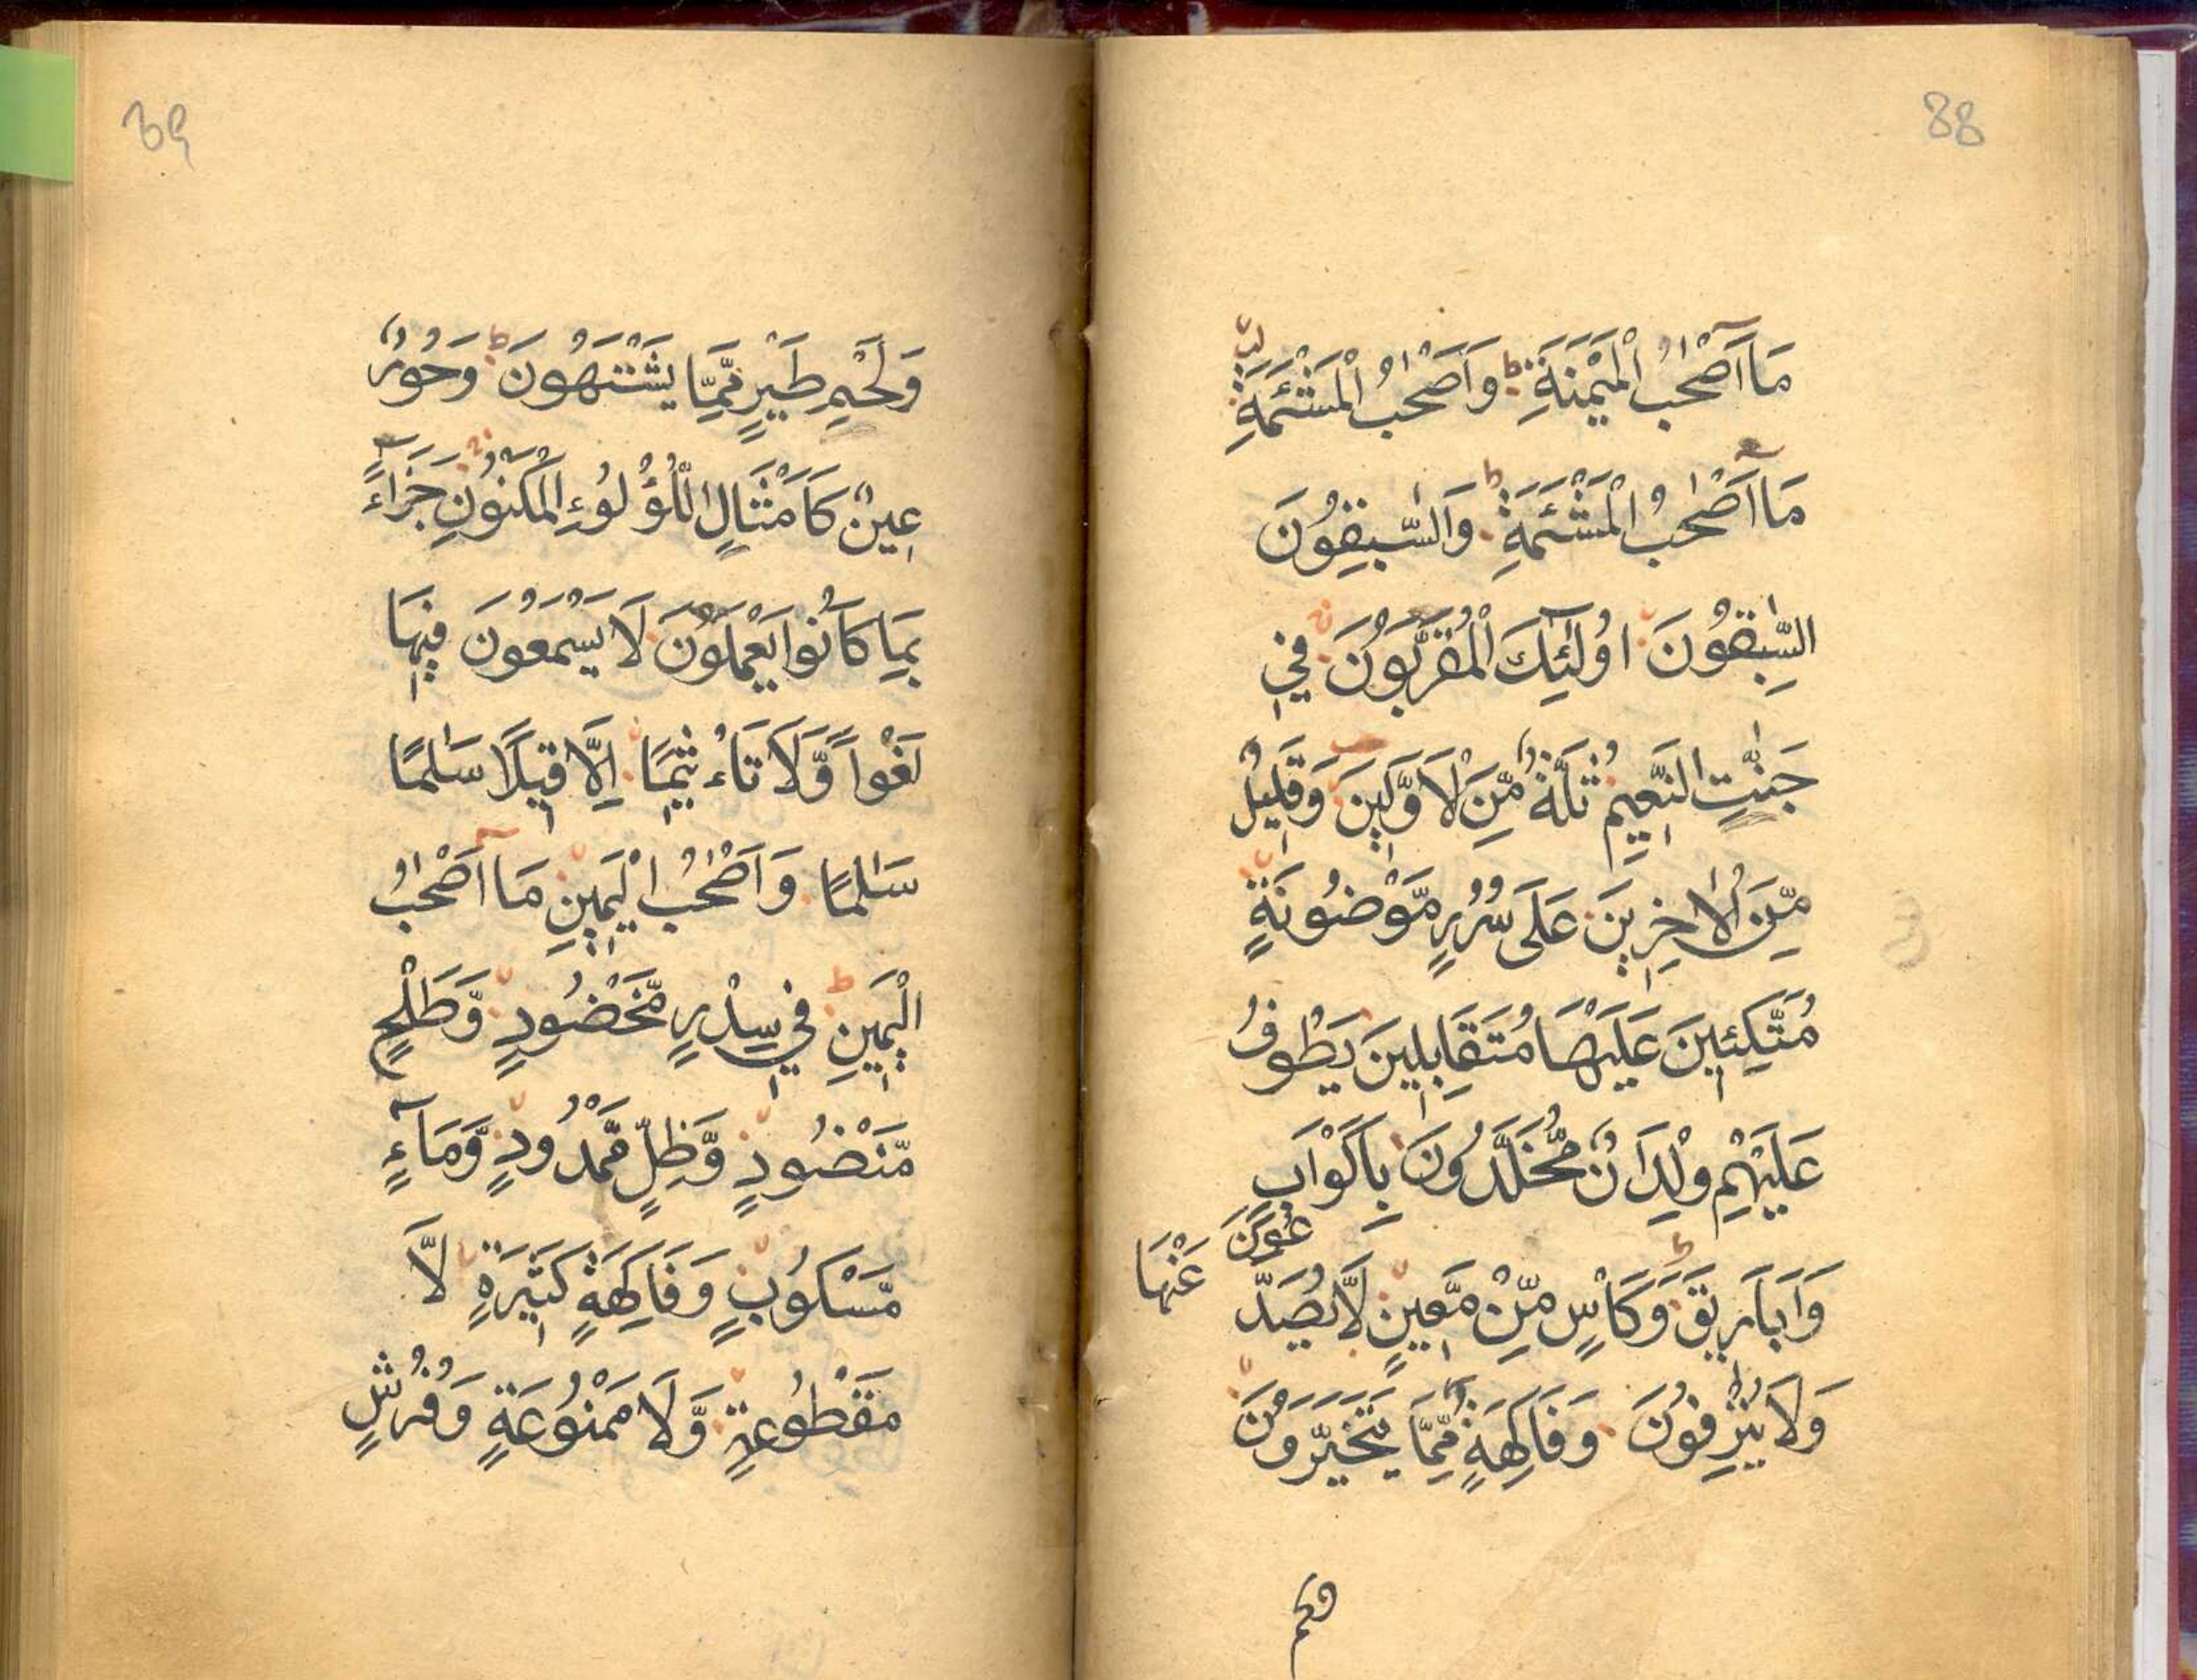 88
مَآ اَصْحٰبُ الْمَيْمَنَةِ ط وَاَصْحٰبُ الْمَشْئَمَةِ
مَآ اَصْحٰبُ الْمَشْئَمَةِ ط وَالسّٰبِقُوْنَ
السّٰبِقُوْنَ اُولٰٓئِكَ الْمُقَرَّبُوْنَ فِي
جَنّٰتِ النَّعِيْمِ ثُلَّةٌ مِّنَ الْاَوَّلِيْنَ وَقَلِيْلٌ
مِّنَ الْاٰخِرِيْنَ عَلَى سُرُرٍ مَّوْضُوْنَةٍ
مُتَّكِئِيْنَ عَلَيْهَا مُتَقَابِلِيْنَ يَطُوْفُ
عَلَيْهِمْ وِلْدَانٌ مُّخَلَّدُوْنَ بِاَكْوَابٍ
وَاَبَارِيْقَ وَكَاْسٍ مِّنْ مَّعِيْنٍ لَّا يُصَدَّعُوْنَ عَنْهَا
وَلَا يُنْزِفُوْنَ وَفَاكِهَةٍ مِّمَّا يَتَخَيَّرُوْنَ
39
وَلَحْمِ طَيْرٍ مِّمَّا يَشْتَهُوْنَ ط وَحُوْرٌ
عِيْنٌ كَاَمْثَالِ اللُّؤْلُوْءِ الْمَكْنُوْنِ جَزَآءً
بِمَا كَانُوْا يَعْمَلُوْنَ لَا يَسْمَعُوْنَ فِيْهَا
لَغْوًا وَّلَا تَاْثِيْمًا اِلَّا قِيْلًا سَلٰمًا
سَلٰمًا وَاَصْحٰبُ الْيَمِيْنِ مَآ اَصْحٰبُ
الْيَمِيْنِ ط فِيْ سِدْرٍ مَّخْضُوْدٍ وَّطَلْحٍ
مَّنْضُوْدٍ وَّظِلٍّ مَّمْدُوْدٍ وَّمَآءٍ
مَّسْكُوْبٍ وَفَاكِهَةٍ كَثِيْرَةٍ لَّا
مَقْطُوْعَةٍ وَّلَا مَمْنُوْعَةٍ وَفُرُشٍ